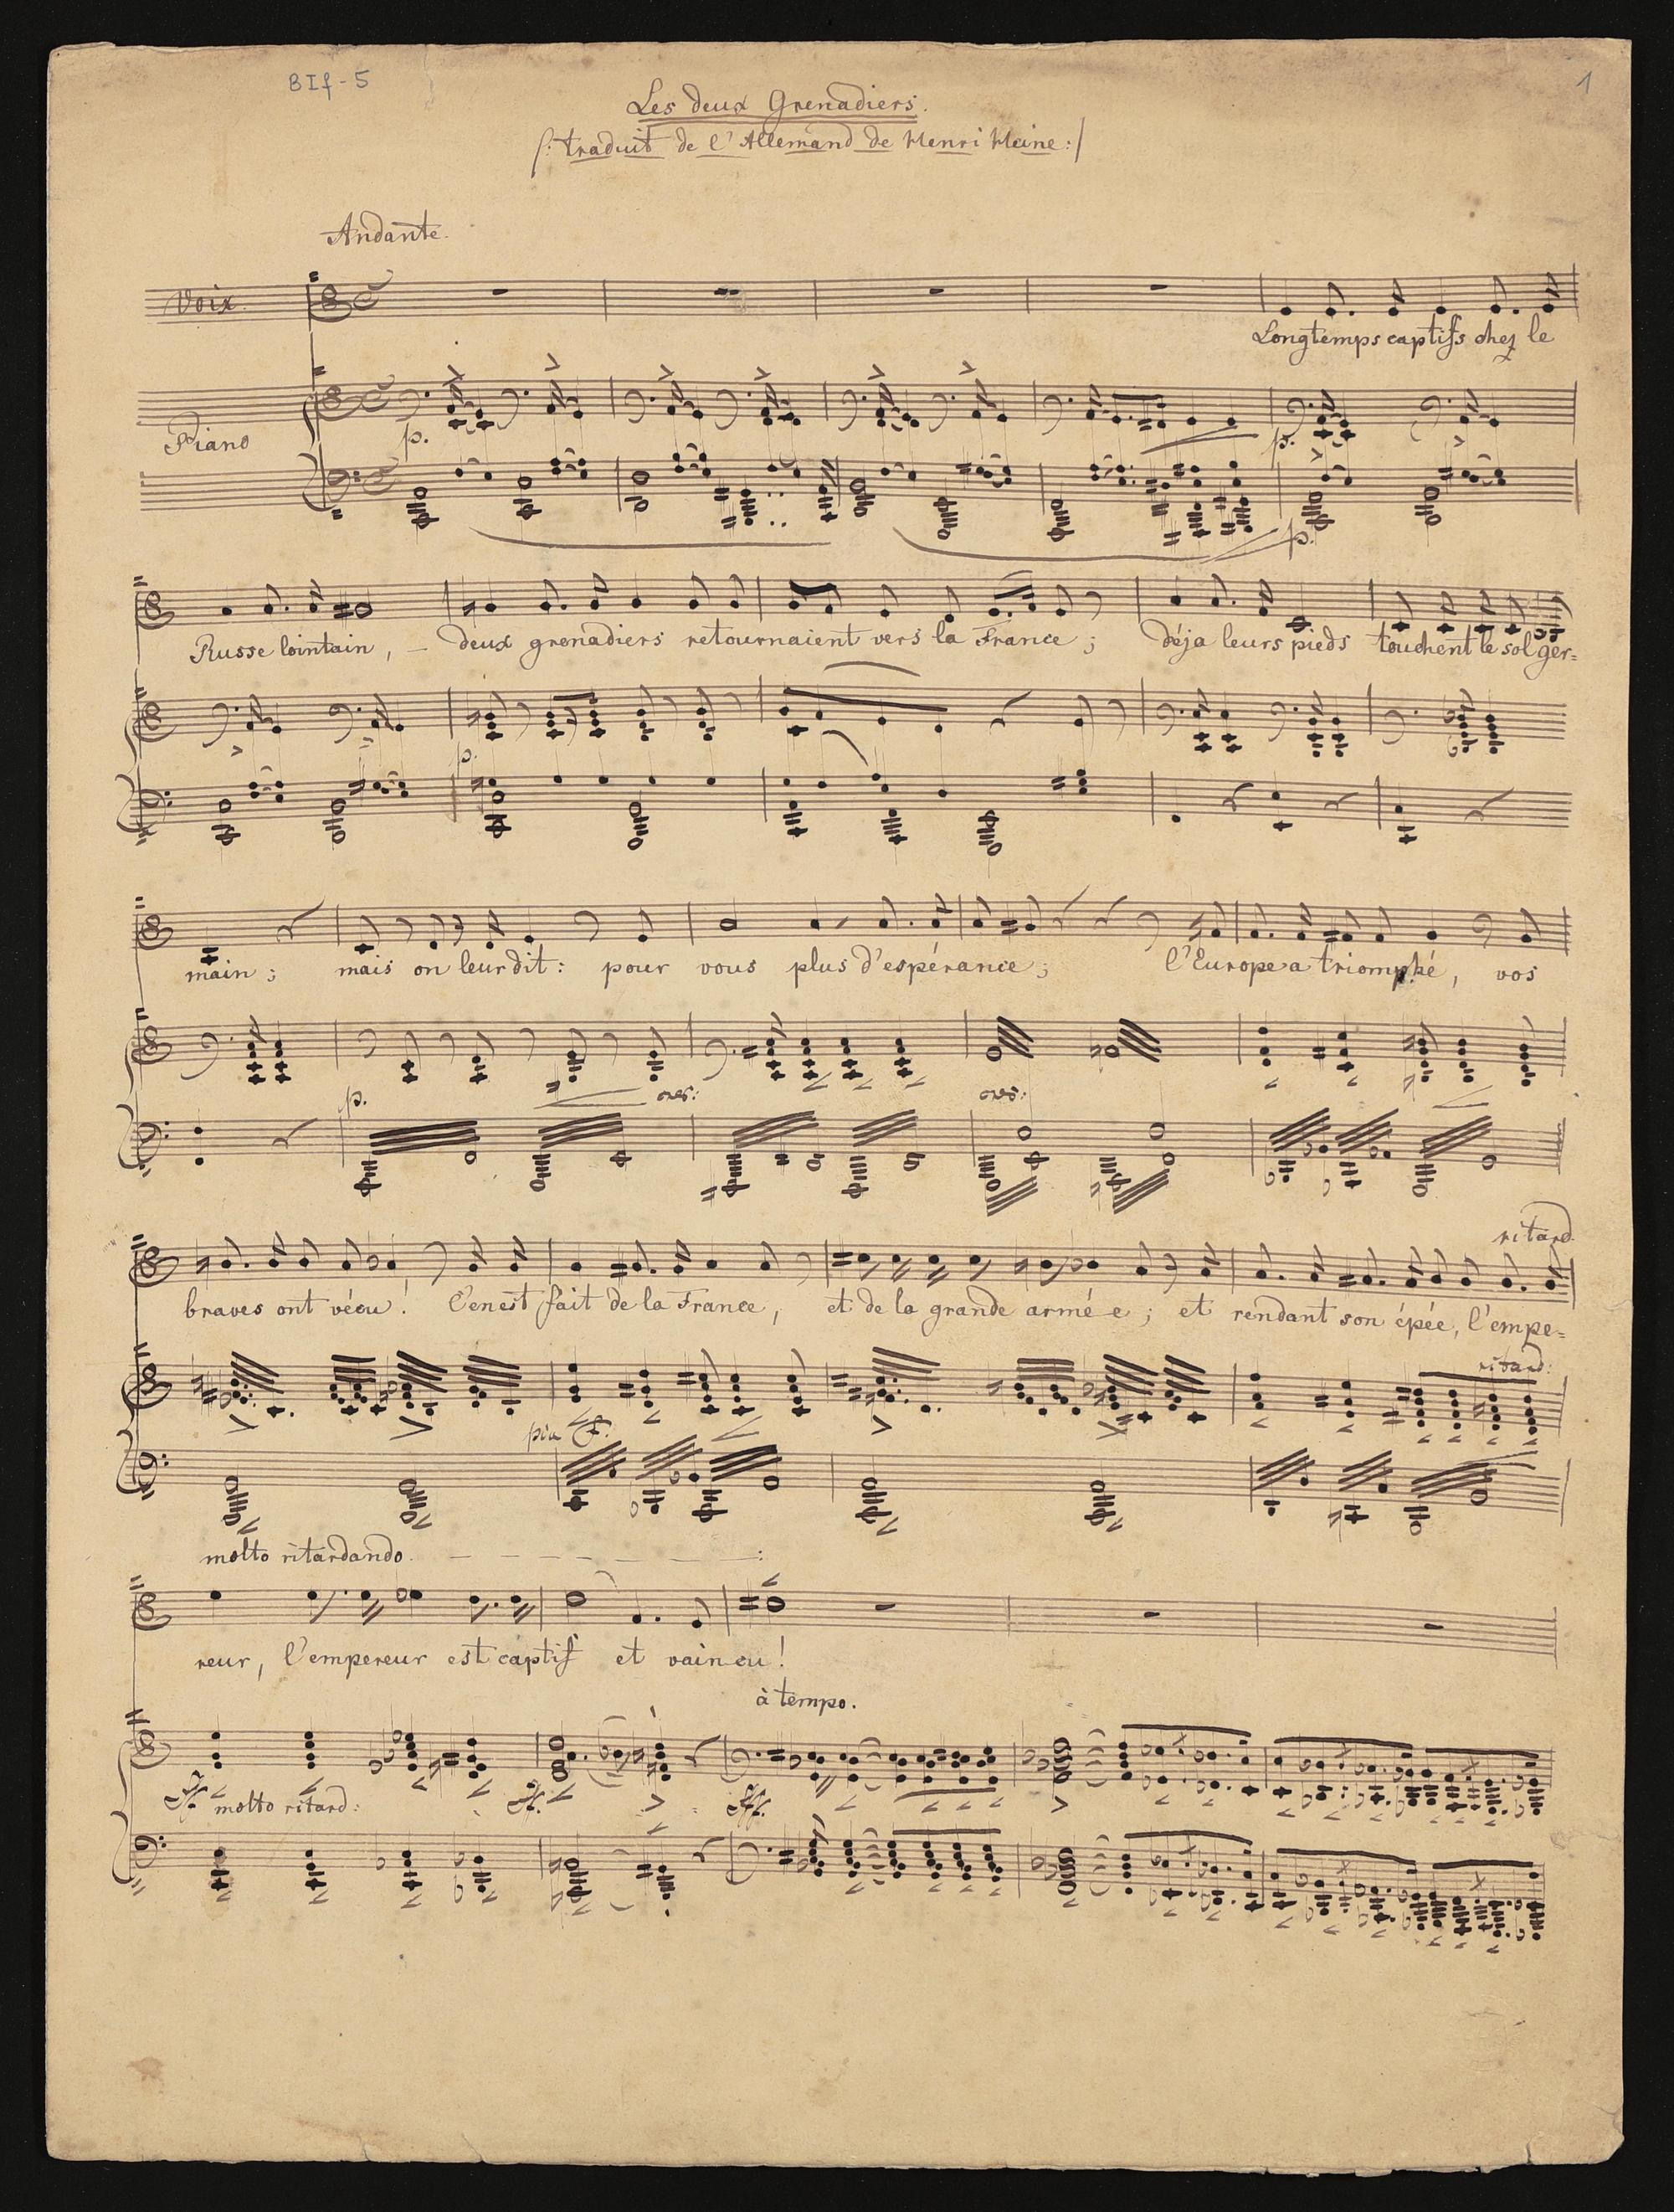 BIf-5
1
Les deux Grenadiers.
/: traduit de l'Allemand de Henri Heine :/
Andante.
Voix.
Longtemps captifs chez le
Piano
p.
p.
p.
Russe lointain, – deux grenadiers retournaient vers la France ; déja leurs pieds touchent le sol ger=
p.
main ; mais on leur dit : pour vous plus d'espérance ; l'Europe a triomphé, vos
p.
cres:
cres:
ritard.
braves ont vécu ! C'en est fait de la France, et de la grande armée ; et rendant son épée, l'empe=
ritard:
più f.
molto ritardando. – – – – – – – :
reur, l'empereur est captif et vaincu !
à tempo.
ff.
molto ritard:
ff.
fff.